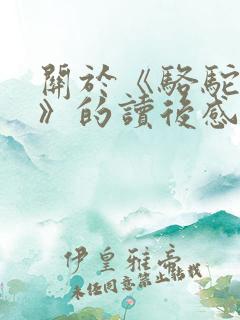 關於《駱駝
》的讀後感
伊皇雅帝
未经同意禁止转载